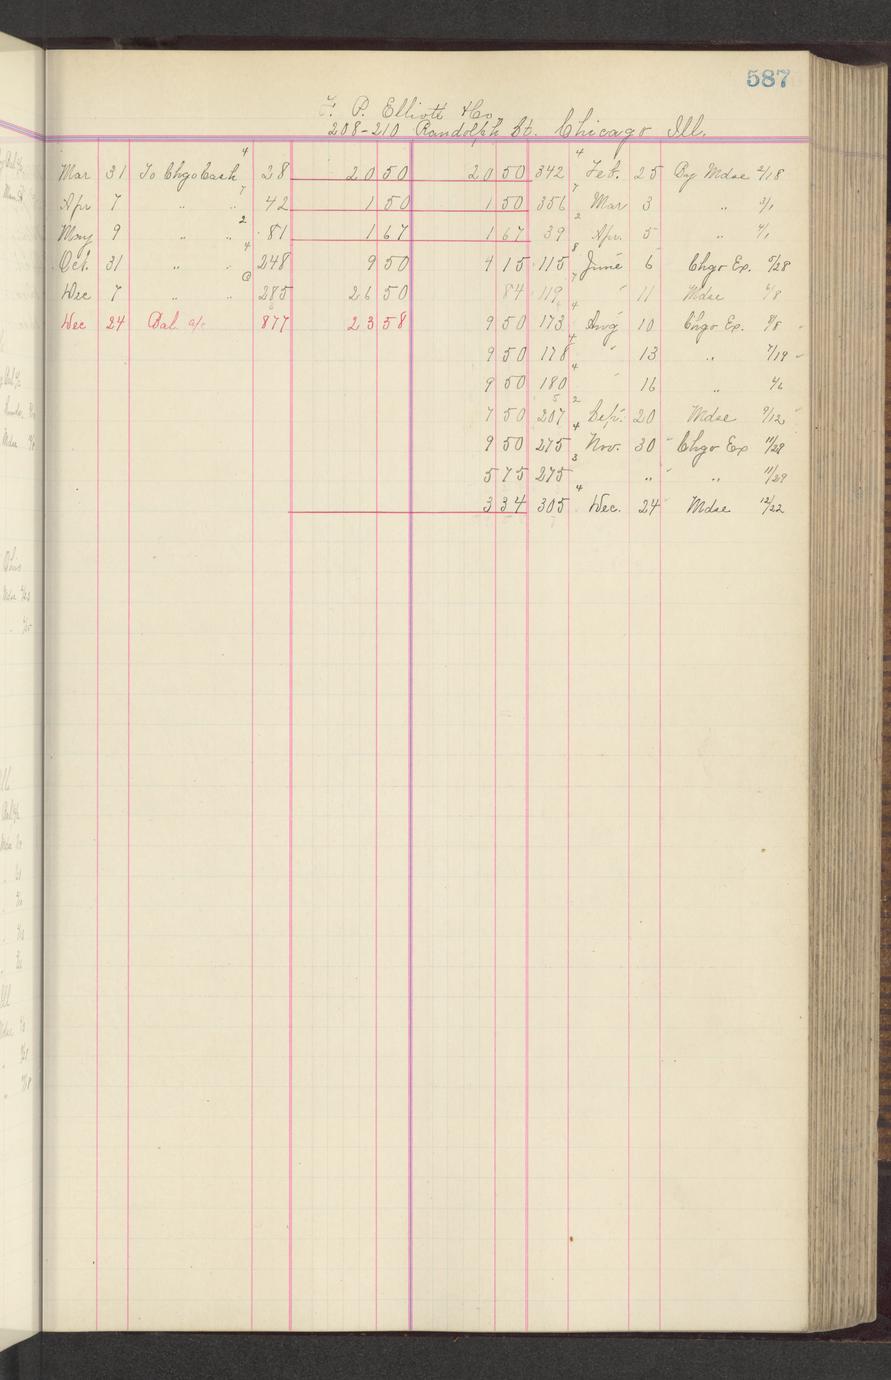 587
F. P. Elliott & Co
208-210 Randolph St. Chicago Ill.
Mar 31 To Chgo Cash 4 28 20 50 20 50 342 4 Feb. 25 By Mdse 2/18
Apr 7 " " 7 42 1 50 1 50 356 7 Mar 3 " 3/1
May 9 " " 2 81 1 67 1 67 39 2 Apr. 5 " 4/1
Oct. 31 " " 4 248 9 50 4 15 115 8 June 6 Chgo Ex. 5/28
Dec 7 " " 285 26 50 84 119 7 " 11 Mdse 6/8
Dec 24 Bal a/c 877 23 58 9 50 173 4 Aug 10 Chgo Ex. 8/8
9 50 178 4 " 13 " 7/19
9 50 180 4 " 16 "
7 50 207 2 Sept. 20 Mdse 9/12
9 50 275 4 Nov. 30 Chgo Ex 11/28
5 75 275 3 " " 11/29
3 34 305 4 Dec. 24 Mdse 12/22